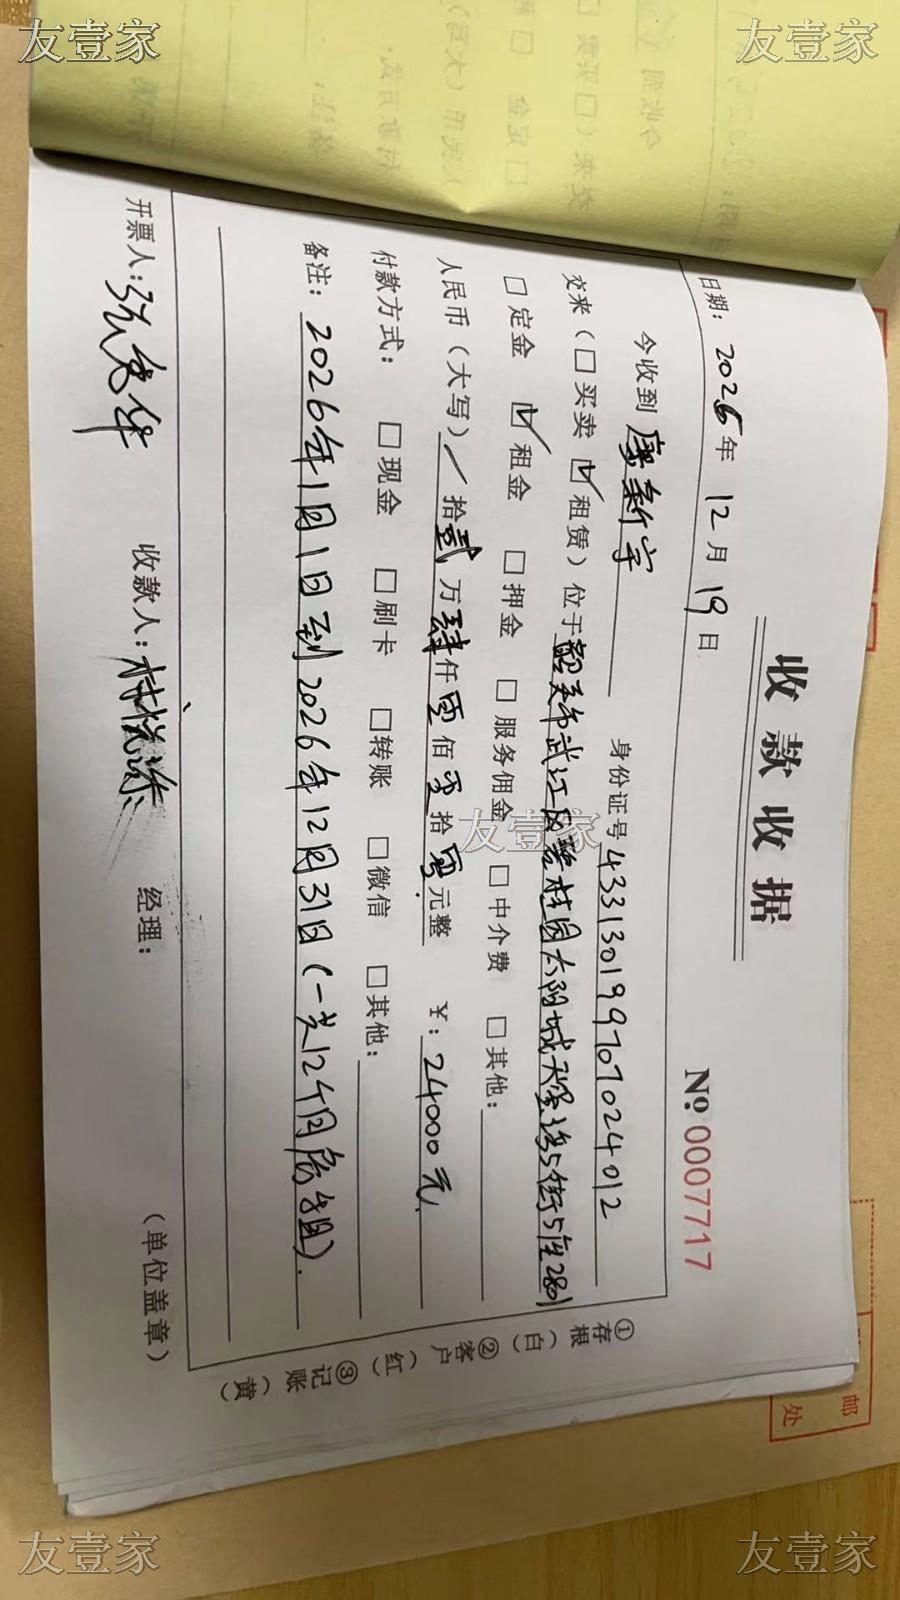 友壹家
友壹家
友壹家
收款收据
№:0007717
日期: 2025年12月19日
今收到 廖新宇 身份证号 433130199707024012
交来(□买卖 ☑租赁)位于韶关市武江区碧桂园太阳城天玺湾5街5座2801
□定金 ☑租金 □押金 □服务佣金 □中介费 □其他:
人民币(大写)/拾贰万肆仟零佰零拾零元整 ¥:24000元
付款方式: □现金 □刷卡 □转账 □微信 □其他:
备注: 2026年1月1日到2026年12月31日(一共12个月房租).
开票人: 收款人: 经理: (单位盖章)
①存根(白) ②客户(红) ③记账(黄)
邮
处
友壹家
友壹家
友壹家
友壹家